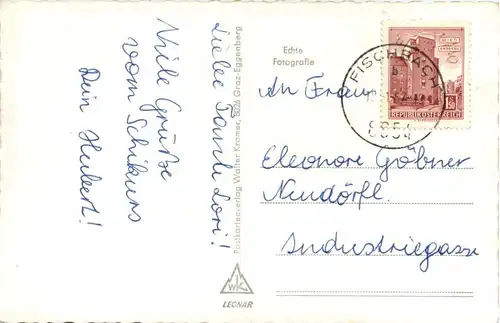 Liebe Tante Lori!
Viele Grüße
vom Schikurs
Dein Hubert!
Echte
Fotografie
Postkartenverlag Walter Kramer, 8026 Graz-Eggenberg
WK
LEONAR
FISCHBACH
8654
REPUBLIK ÖSTERREICH
1.50
An Frau
Eleonore Göbner
Neudörfl
Industriegasse